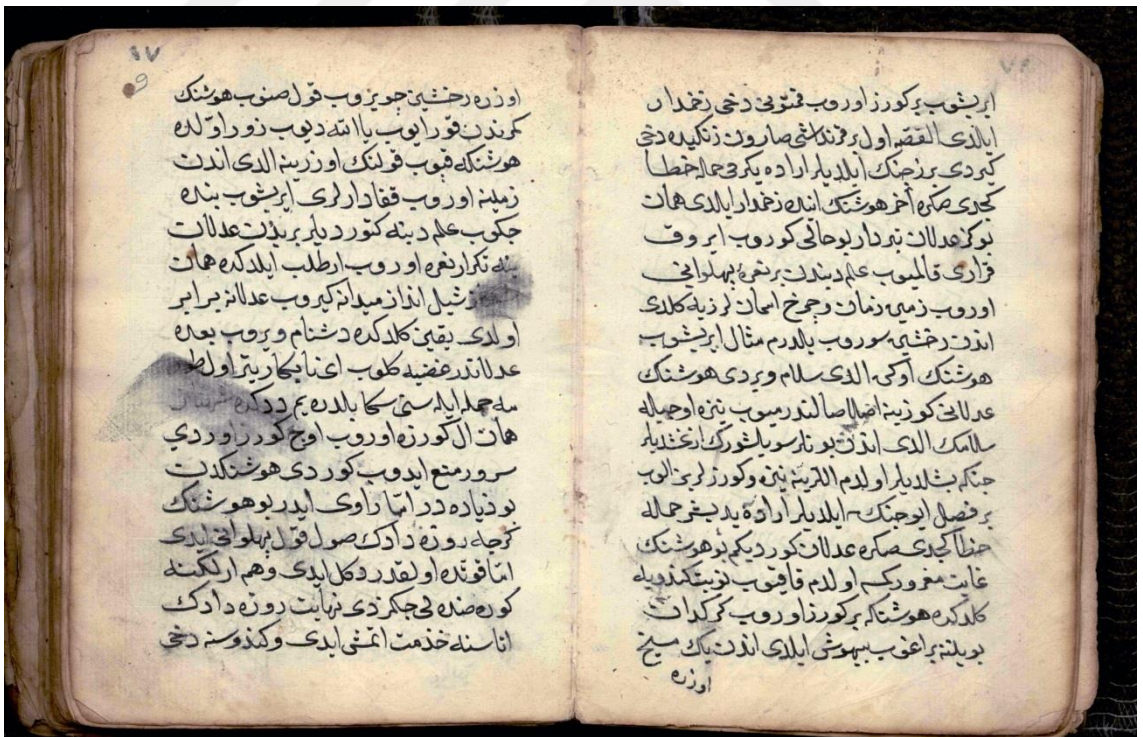 ایریشوب بر کورز اوروب فمتونی دخی زخمدار
ایلدی القصه اول بر قرنداشی صارون زنکیده دخی
کیردی بر زجنك ایلدیلر اراده یکرمی حمله خطا
کچدی صکره آخر هوشنك انیده زخمدار ایلدی همان
بو کز عدلان نبردار بو حالی کوروب ایروق
قراری قالمیوب علم دیبندن بر نعره پهلوانی
اوروب زمین زمان و چرخ اسمان لرزیه کلدی
اندن رخشین سوروب یلدرم مثال ایریشوب
هوشنك اوکن الدی سلام ویردی هوشنك
عدلانی کوزینه اصلا صالندرمیوب نیزه اوجیله
سلامك الدی اندن بونلر سویلشورك
جنکه بشلدیلر اولدم اللرینه نیزه و کورزلرین الوب
بر فصل ایو جنك ایلدیلر اراده ید بشر حمله
خطا کچدی صکره عدلان کوردیکم بو هوشنك
غایت مغرورکم اولدم قاقیوب
کلدکده هوشنکه بر کورز اوروب کرکدان
بوینینه براغوب بیهوش ایلدی اندن یك میخ
اوزره
١٧
اوزره رخشین چویروب قول صنوب هوشنك
کمرندن قورایوب یا الله دیوب زور اولده
هوشنکه قیوب قولنك اوزرینه الدی اندن
زمینه اوروب قفادارلری ایریشوب بنده
چکوب علم دیبنه کتوردیلر بریدن عدلان
ینه تکرار نعره اوروب ار طلب ایلدکده همان
شیل انداز میدانه کیروب عدلانه برابر
اولدی یقین کلدکده دشنام ویروب بعده
عدلاندر غضبه کلوب
مه حمله ایله سنی سکا بلدرهیم ددکده
همان ال کورزه اوروب اوج کورز اوردی
سرور منع ایدوب کوردی هوشنکدن
بو زیاده در امّا راوی ایدر بو هوشنك
کرچه روزه دادك صول قول پهلوانی ایدی
امّا قوتده اولقدر دکل ایدی وهم ارلکنه
کوره ضده لی چکمزدی نهایت روزه دادك
اناسنه خذمت اتمش ایدی و کندوسنه دخی